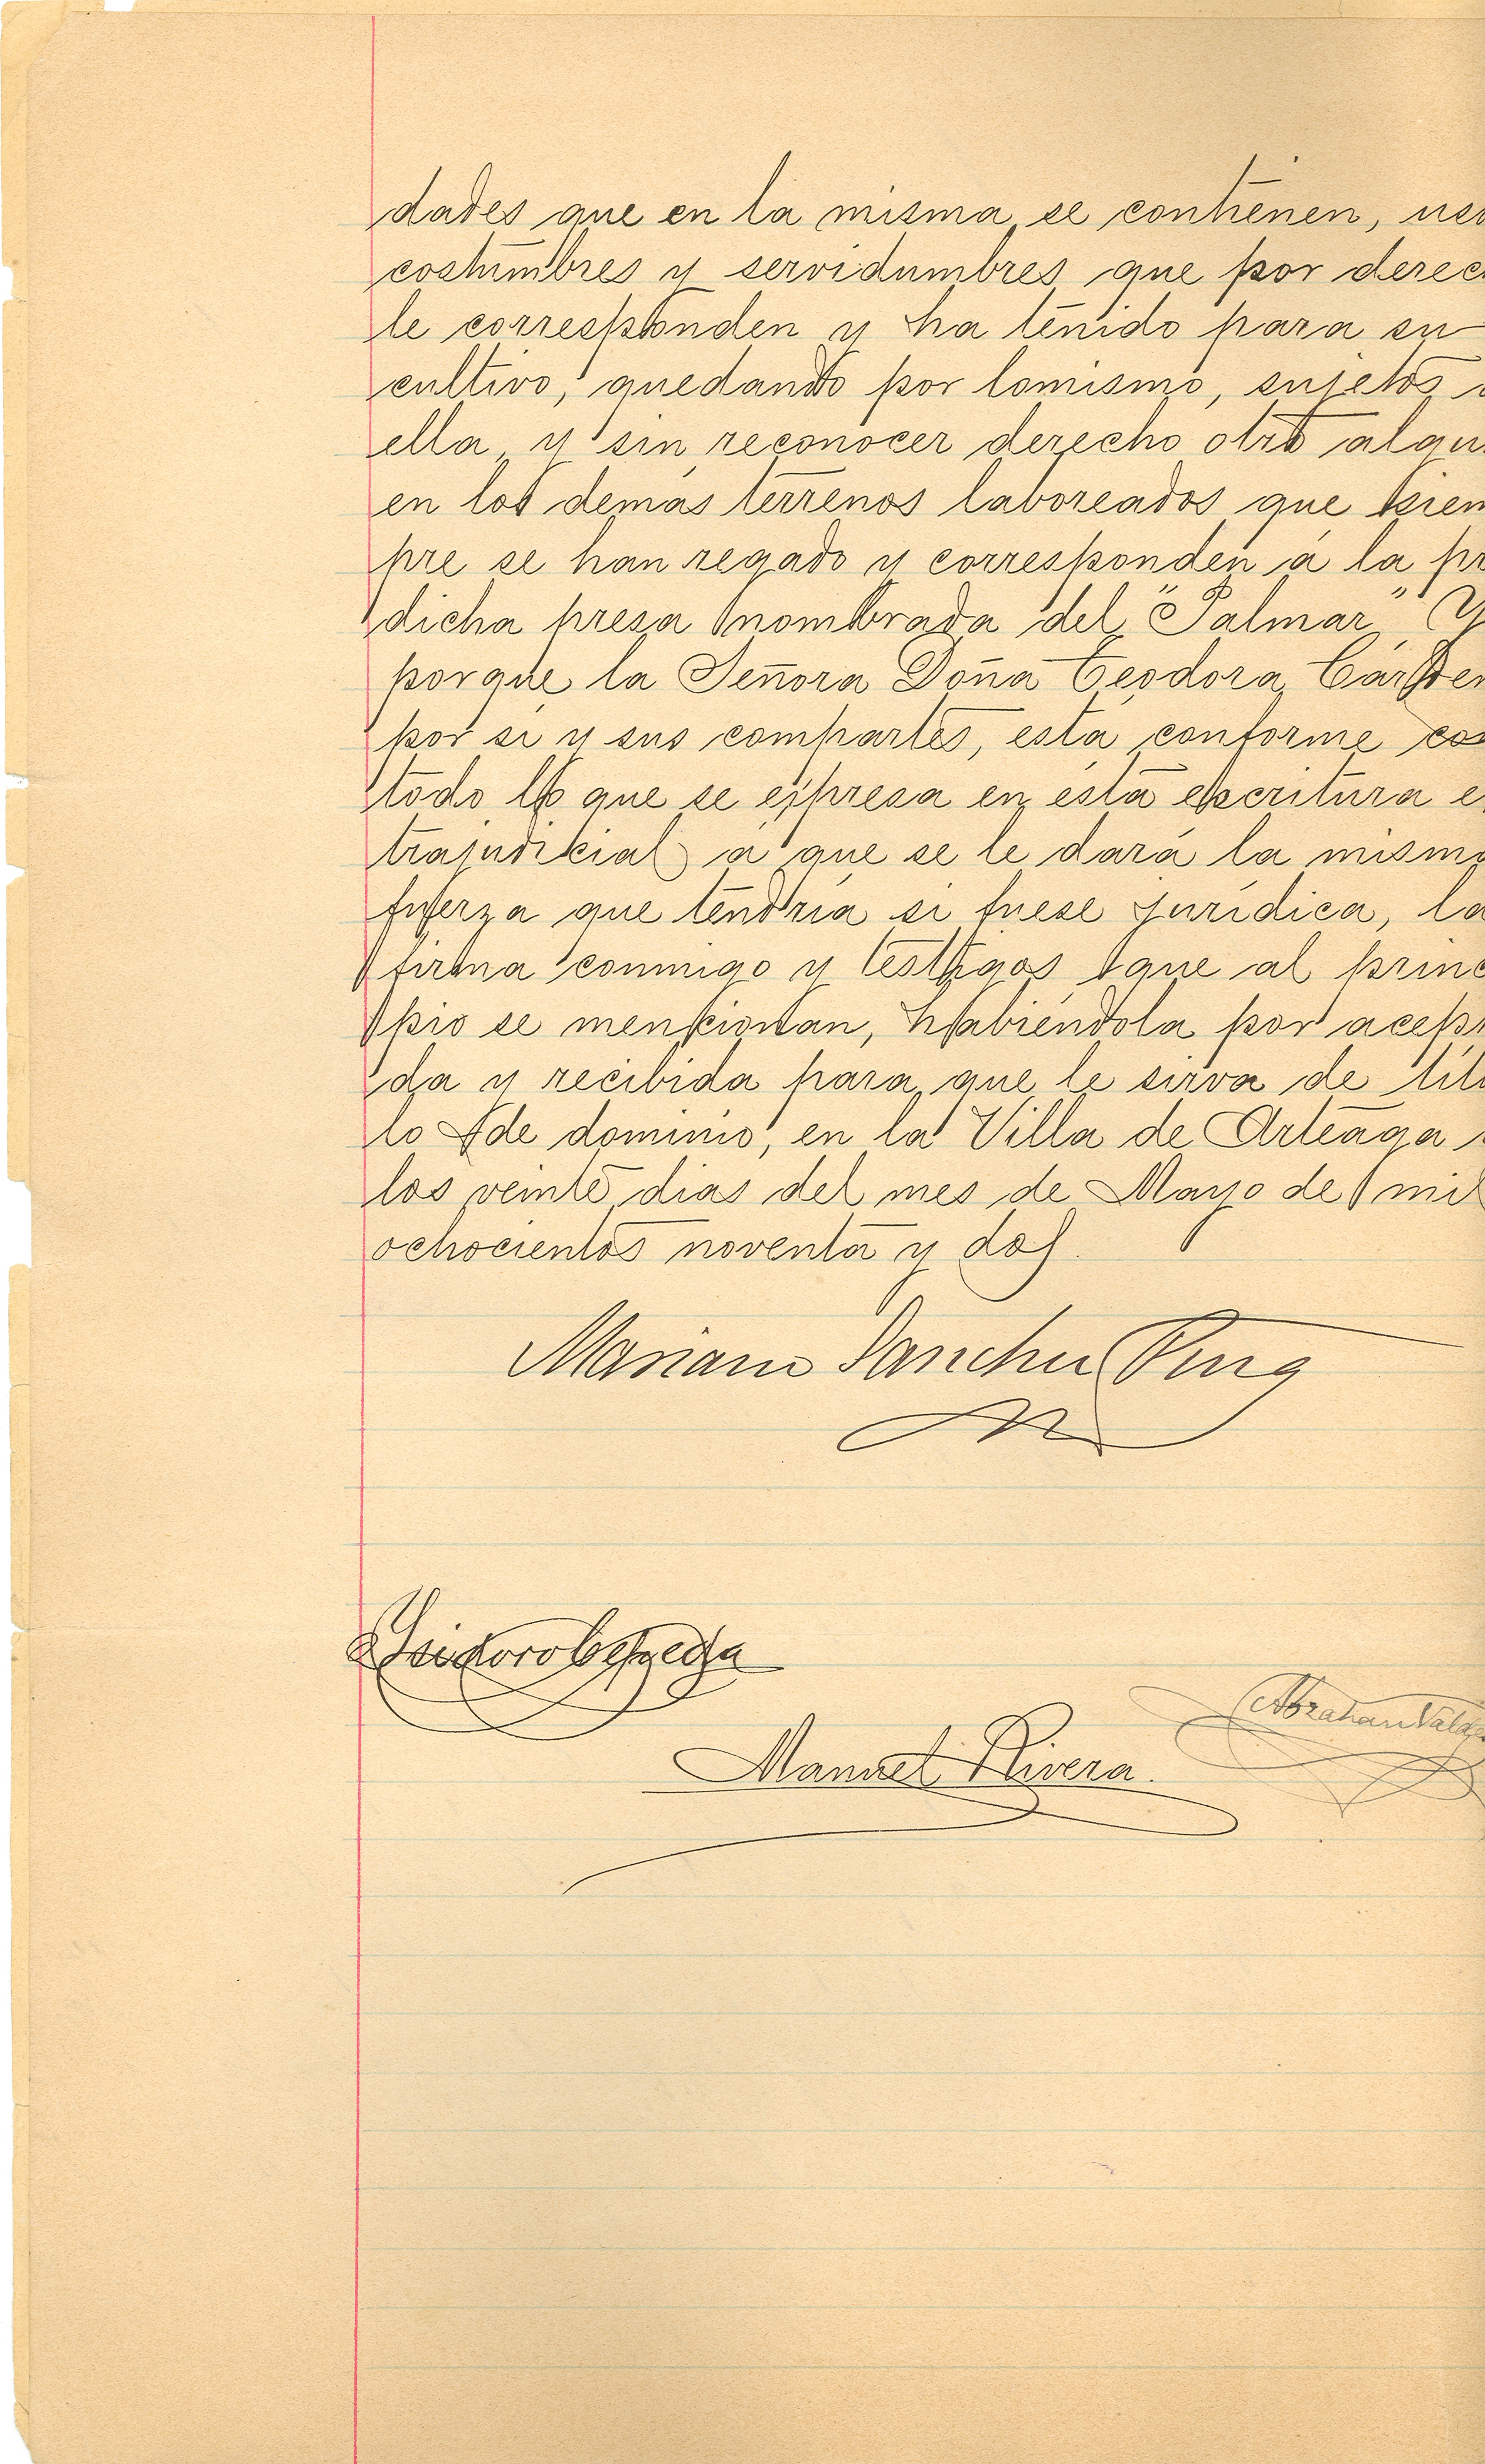 dades que en la misma se contienen, uso
costumbres y servidumbres que por derec
le corresponden y ha tenido para su
cultivo, quedando por lo mismo, sujetos a
ella y sin reconocer derecho otro algu
en los demás terrenos laboreados que siem
pre se han regado y corresponden á la pre
dicha presa nombrada del "Palmar" Y
porque la Señora Doña Teodora Cárden
por si y sus compartes, está conforme co
todo lo que se espresa en ésta escritura e
trajudicial á que se le dará la misma
fuerza que tendría si fuese jurídica, la
firma conmigo y testigos que al princ
pio se mencionan, habiéndola por acep
da y recibida para que le sirva de títu
lo de dominio, en la Villa de Arteaga á
los veinte dias del mes de Mayo de mil
ochocientos noventa y dos.
Mariano Sanchez Puig
Isidoro Cepeda
Abraham Valdes
Manuel Rivera.